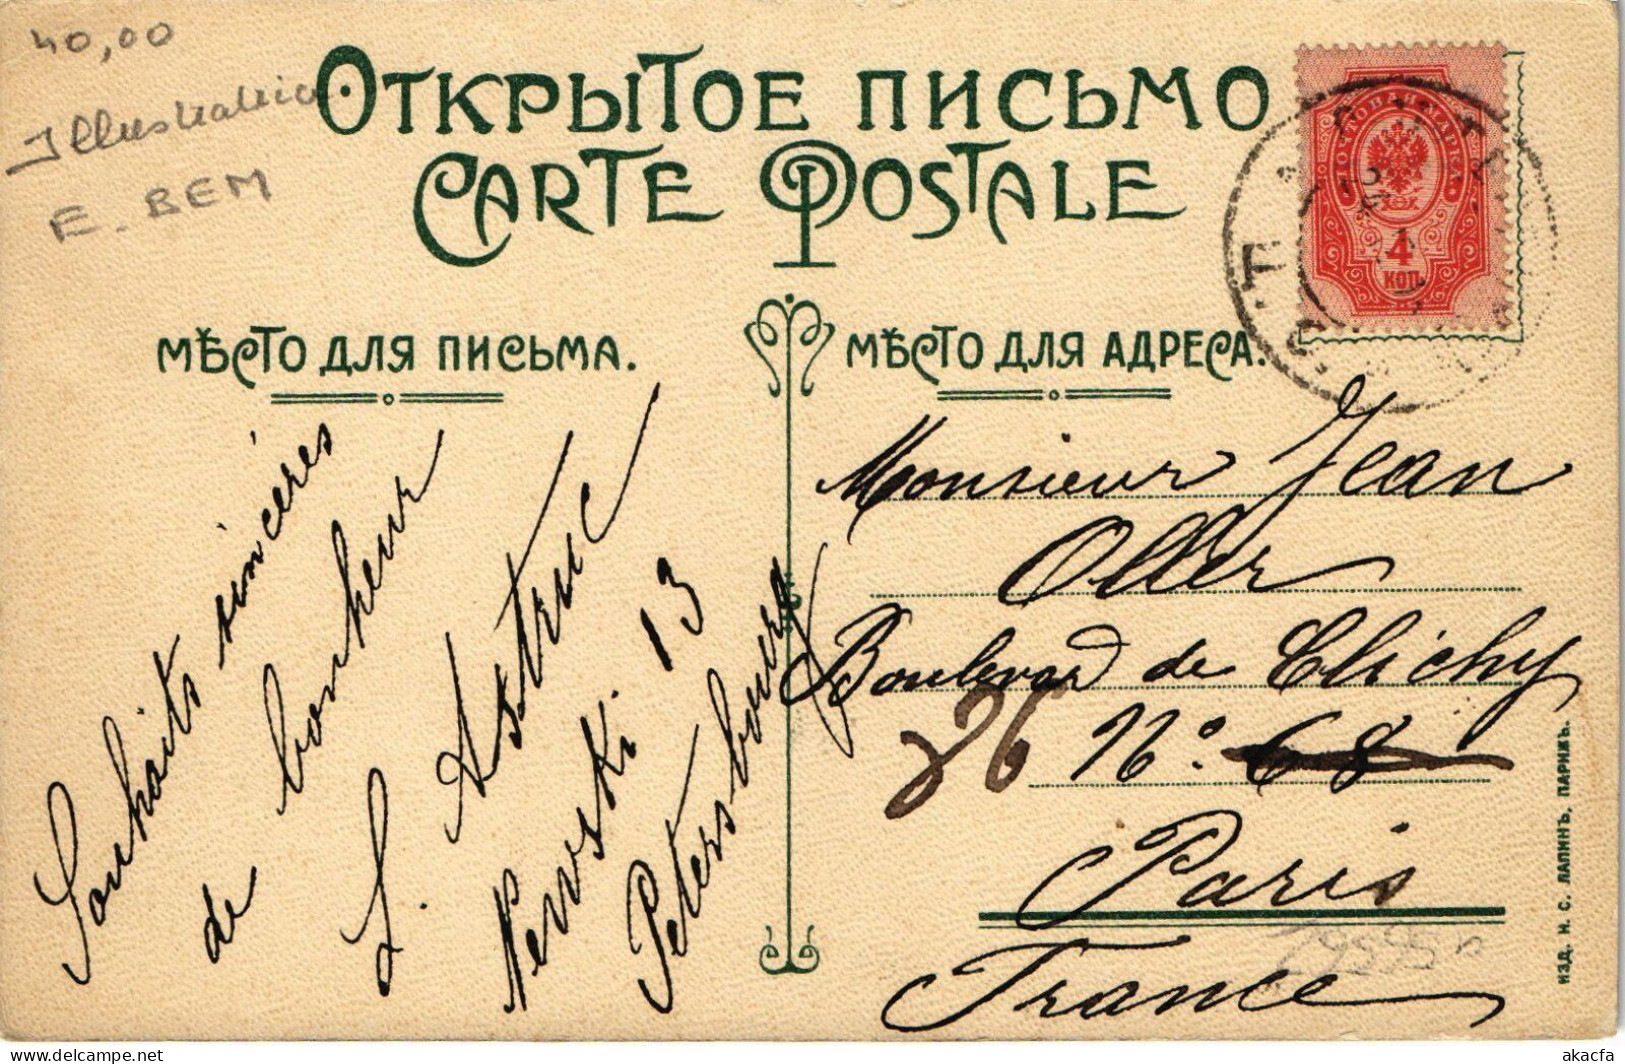 40,00
E. BEM
Открытое письмо
Carte Postale
ПОЧТОВАЯ МАРКА
4
КОП.
Мѣсто для письма.
Мѣсто для адреса.
Souhaits sincères
de bonheur
L. Astruc
Newski. 13
Petersbourg
Monsieur Jean
Oller
Boulevard de Clichy
26 No. 68
Paris
France
ИЗД. Н. С. ЛАПИНЪ, ПАРИЖЪ.
delcampe.net
akacfa